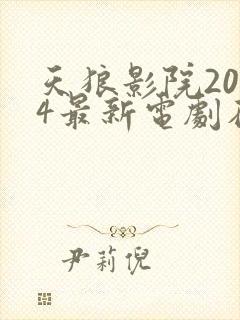 天狼影院20
4最新電劇在
尹莉倪